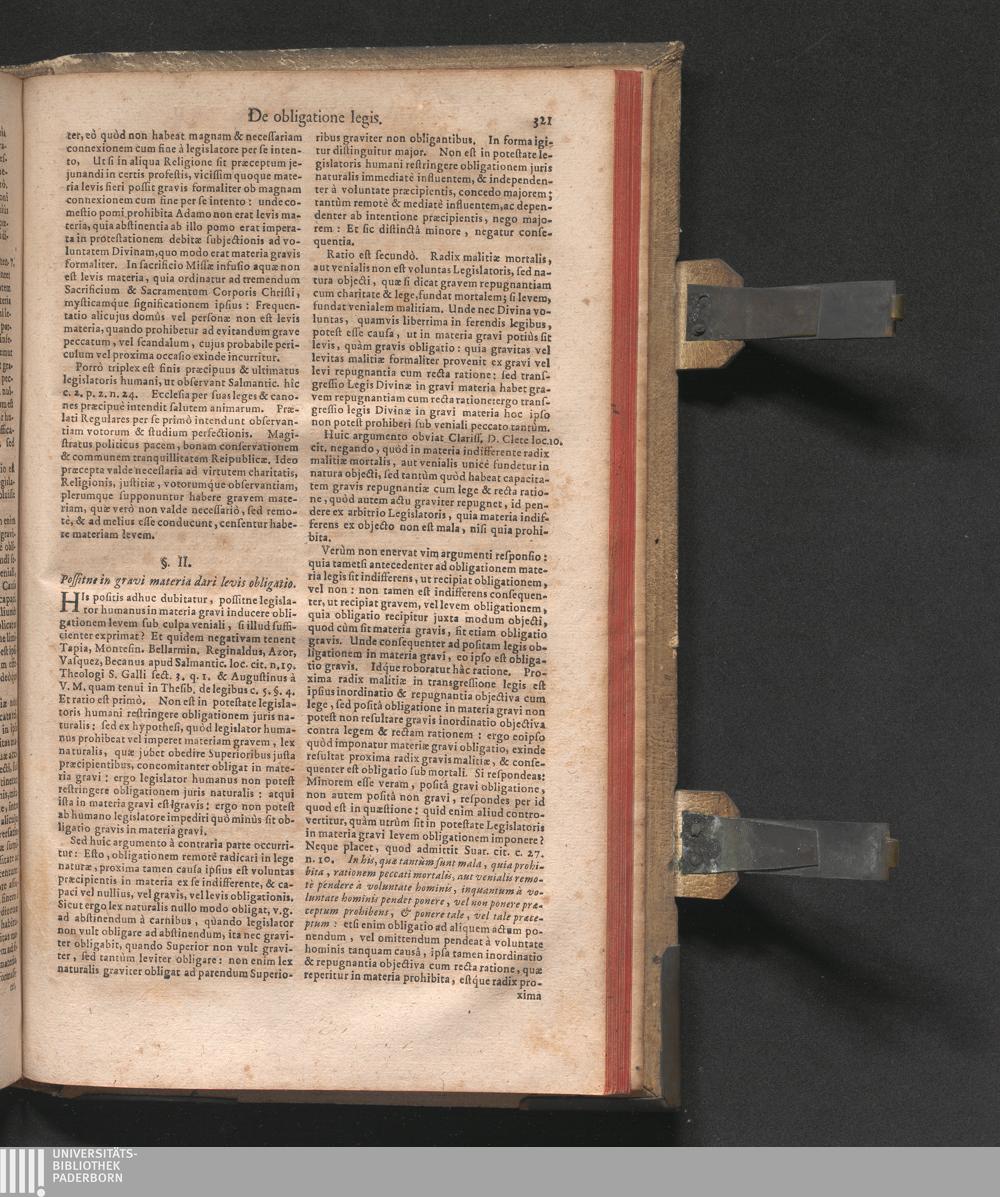 De obligatione legis.
321
ter, eò quòd non habeat magnam & neceſſariam
connexionem cum fine à legislatore per ſe inten-
to, Ut ſi in aliqua Religione ſit præceptum je-
junandi in certis profeſtis, viciſſim quoque mate-
ria levis fieri poſſit gravis formaliter ob magnam
connexionem cum fine per ſe intento: unde co-
meſtio pomi prohibita Adamo non erat levis ma-
teria, quia abſtinentia ab illo pomo erat impera-
ta in proteſtationem debitæ ſubjectionis ad vo-
luntatem Divinam, quo modo erat materia gravis
formaliter. In ſacrificio Miſſæ infuſio aquæ non
eſt levis materia, quia ordinatur ad tremendum
Sacrificium & Sacramentum Corporis Chriſti,
myſticamque ſignificationem ipſius: Frequen-
tatio alicujus domûs vel perſonæ non eſt levis
materia, quando prohibetur ad evitandum grave
peccatum, vel ſcandalum, cujus probabile peri-
culum vel proxima occaſio exinde incurritur.
Porrò triplex eſt finis præcipuus & ultimatus
legislatoris humani, ut obſervant Salmantic. hîc
c. 2. p. 2. n. 24. Eccleſia per ſuas leges & cano-
nes præcipuè intendit ſalutem animarum. Præ-
lati Regulares per ſe primò intendunt obſervan-
tiam votorum & ſtudium perfectionis. Magi-
ſtratus politicus pacem, bonam conſervationem
& communem tranquillitatem Reipublicæ. Ideo
præcepta valde neceſſaria ad virtutem charitatis,
Religionis, juſtitiæ, votorumque obſervantiam,
plerumque ſupponuntur habere gravem mate-
riam, quæ verò non valde neceſſariò, ſed remo-
tè, & ad melius eſſe conducunt, cenſentur habe-
re materiam levem.
§. II.
Poſſitne in gravi materia dari levis obligatio.
HIs poſitis adhuc dubitatur, poſſitne legisla-
tor humanus in materia gravi inducere obli-
gationem levem ſub culpa veniali, ſi illud ſuffi-
cienter exprimat? Et quidem negativam tenent
Tapia, Monteſin. Bellarmin. Reginaldus, Azor,
Vaſquez, Becanus apud Salmantic. loc. cit. n, 19.
Theologi S. Galli ſect. 3. q. 1. & Auguſtinus à
V. M. quam tenui in Theſib. de legibus c. 5. §. 4.
Et ratio eſt primò. Non eſt in poteſtate legisla-
toris humani reſtringere obligationem juris na-
turalis: ſed ex hypotheſi, quòd legislator huma-
nus prohibeat vel imperet materiam gravem, lex
naturalis, quæ jubet obedire Superioribus juſta
præcipientibus, concomitanter obligat in mate-
ria gravi: ergo legislator humanus non poteſt
reſtringere obligationem juris naturalis: atqui
iſta in materia gravi eſt gravis: ergo non poteſt
ab humano legislatore impediri quò minùs ſit ob-
ligatio gravis in materia gravi.
Sed huic argumento à contraria parte occurri-
tur: Eſto, obligationem remotè radicari in lege
naturæ, proxima tamen cauſa ipſius eſt voluntas
præcipientis in materia ex ſe indifferente, & ca-
paci vel nullius, vel gravis, vel levis obligationis.
Sicut ergo lex naturalis nullo modo obligat, v.g.
ad abſtinendum à carnibus, quando legislator
non vult obligare ad abſtinendum, ita nec gravi-
ter obligabit, quando Superior non vult gravi-
ter, ſed tantùm leviter obligare: non enim lex
naturalis graviter obligat ad parendum Superio-
ribus graviter non obligantibus. In forma igi-
tur diſtinguitur major. Non eſt in poteſtate le-
gislatoris humani reſtringere obligationem juris
naturalis immediatè influentem, & independen-
ter à voluntate præcipientis, concedo majorem;
tantùm remotè & mediatè influentem, ac depen-
denter ab intentione præcipientis, nego majo-
rem: Et ſic diſtinctâ minore, negatur conſe-
quentia.
Ratio eſt ſecundò. Radix malitiæ mortalis,
aut venialis non eſt voluntas Legislatoris, ſed na-
tura objecti, quæ ſi dicat gravem repugnantiam
cum charitate & lege, fundat mortalem; ſi levem,
fundat venialem malitiam. Unde nec Divina vo-
luntas, quamvis liberrima in ferendis legibus,
poteſt eſſe cauſa, ut in materia gravi potiùs ſit
levis, quàm gravis obligatio: quia gravitas vel
levitas malitiæ formaliter provenit ex gravi vel
levi repugnantia cum recta ratione: ſed tranſ-
greſſio Legis Divinæ in gravi materia habet gra-
vem repugnantiam cum recta ratione: ergo tranſ-
greſſio legis Divinæ in gravi materia hoc ipſo
non poteſt prohiberi ſub veniali peccato tantùm.
Huic argumento obviat Clariſſ. D. Clete loc. 10.
cit. negando, quòd in materia indifferente radix
malitiæ mortalis, aut venialis unicè fundetur in
natura objecti, ſed tantùm quòd habeat capacita-
tem gravis repugnantiæ cum lege & recta ratio-
ne, quòd autem actu graviter repugnet, id pen-
dere ex arbitrio Legislatoris, quia materia indif-
ferens ex objecto non eſt mala, niſi quia prohi-
bita.
Verùm non enervat vim argumenti reſponſio:
quia tametſi antecedenter ad obligationem mate-
ria legis ſit indifferens, ut recipiat obligationem,
vel non: non tamen eſt indifferens conſequen-
ter, ut recipiat gravem, vel levem obligationem,
quia obligatio recipitur juxta modum objecti,
quod cùm ſit materia gravis, ſit etiam obligatio
gravis. Unde conſequenter ad poſitam legis ob-
ligationem in materia gravi, eo ipſo eſt obliga-
tio gravis. Idque roboratur hâc ratione. Pro-
xima radix malitiæ in transgreſſione legis eſt
ipſius inordinatio & repugnantia objectiva cum
lege, ſed poſitâ obligatione in materia gravi non
poteſt non reſultare gravis inordinatio objectiva
contra legem & rectam rationem: ergo eoipſo
quòd imponatur materiæ gravi obligatio, exinde
reſultat proxima radix gravis malitiæ, & conſe-
quenter eſt obligatio ſub mortali. Si reſpondeas:
Minorem eſſe veram, poſitâ gravi obligatione,
non autem poſitâ non gravi, reſpondes per id
quod eſt in quæſtione: quid enim aliud contro-
vertitur, quàm utrùm ſit in poteſtate Legislatoris
in materia gravi levem obligationem imponere?
Neque placet, quod admittit Suar. cit. c. 27.
n. 10. In his, quæ tantùm ſunt mala, quia prohi-
bita, rationem peccati mortalis, aut venialis remo-
tè pendere à voluntate hominis, inquantum à vo-
luntate hominis pendet ponere, vel non ponere præ-
ceptum prohibens, & ponere tale, vel tale præce-
ptum: etſi enim obligatio ad aliquem actum po-
nendum, vel omittendum pendeat à voluntate
hominis tanquam causâ, ipſa tamen inordinatio
& repugnantia objectiva cum recta ratione, quæ
reperitur in materia prohibita, eſtque radix pro-
xima
UNIVERSITÄTS-
BIBLIOTHEK
PADERBORN